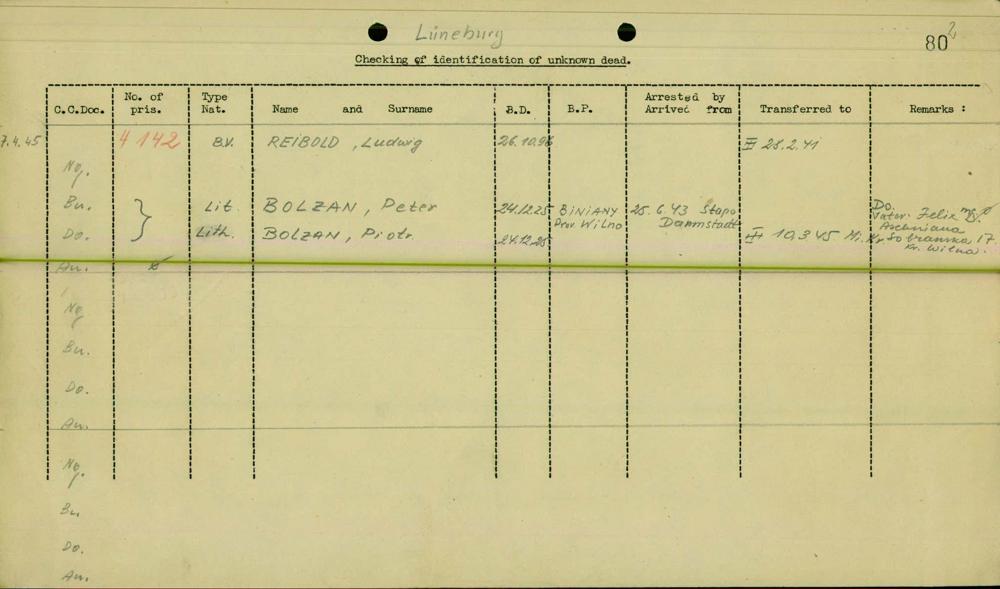 Lüneburg
80 2
Checking of identification of unknown dead.
C.C.Doc. No. of pris. Type Nat. Name and Surname B.D. B.P. Arrested by Arrived from Transferred to Remarks :
7.4.45 4 142 B.V. REIBOLD, Ludwig 26.10.96 II 28.2.41
Ng.
Bu. Lit. BOLZAN, Peter 24.12.25 BiNiANY Prov Wilno 25.6.43 Stapo Darmstadt Do. Vater: Felix
Do. Lith. BOLZAN, Piotr. 24.12.25 III 10.3.45 Mi. Sobranska 17. Kr. Wilna.
Au.
Ng.
Bu.
Do.
Au.
Ng.
Bu.
Do.
Au.